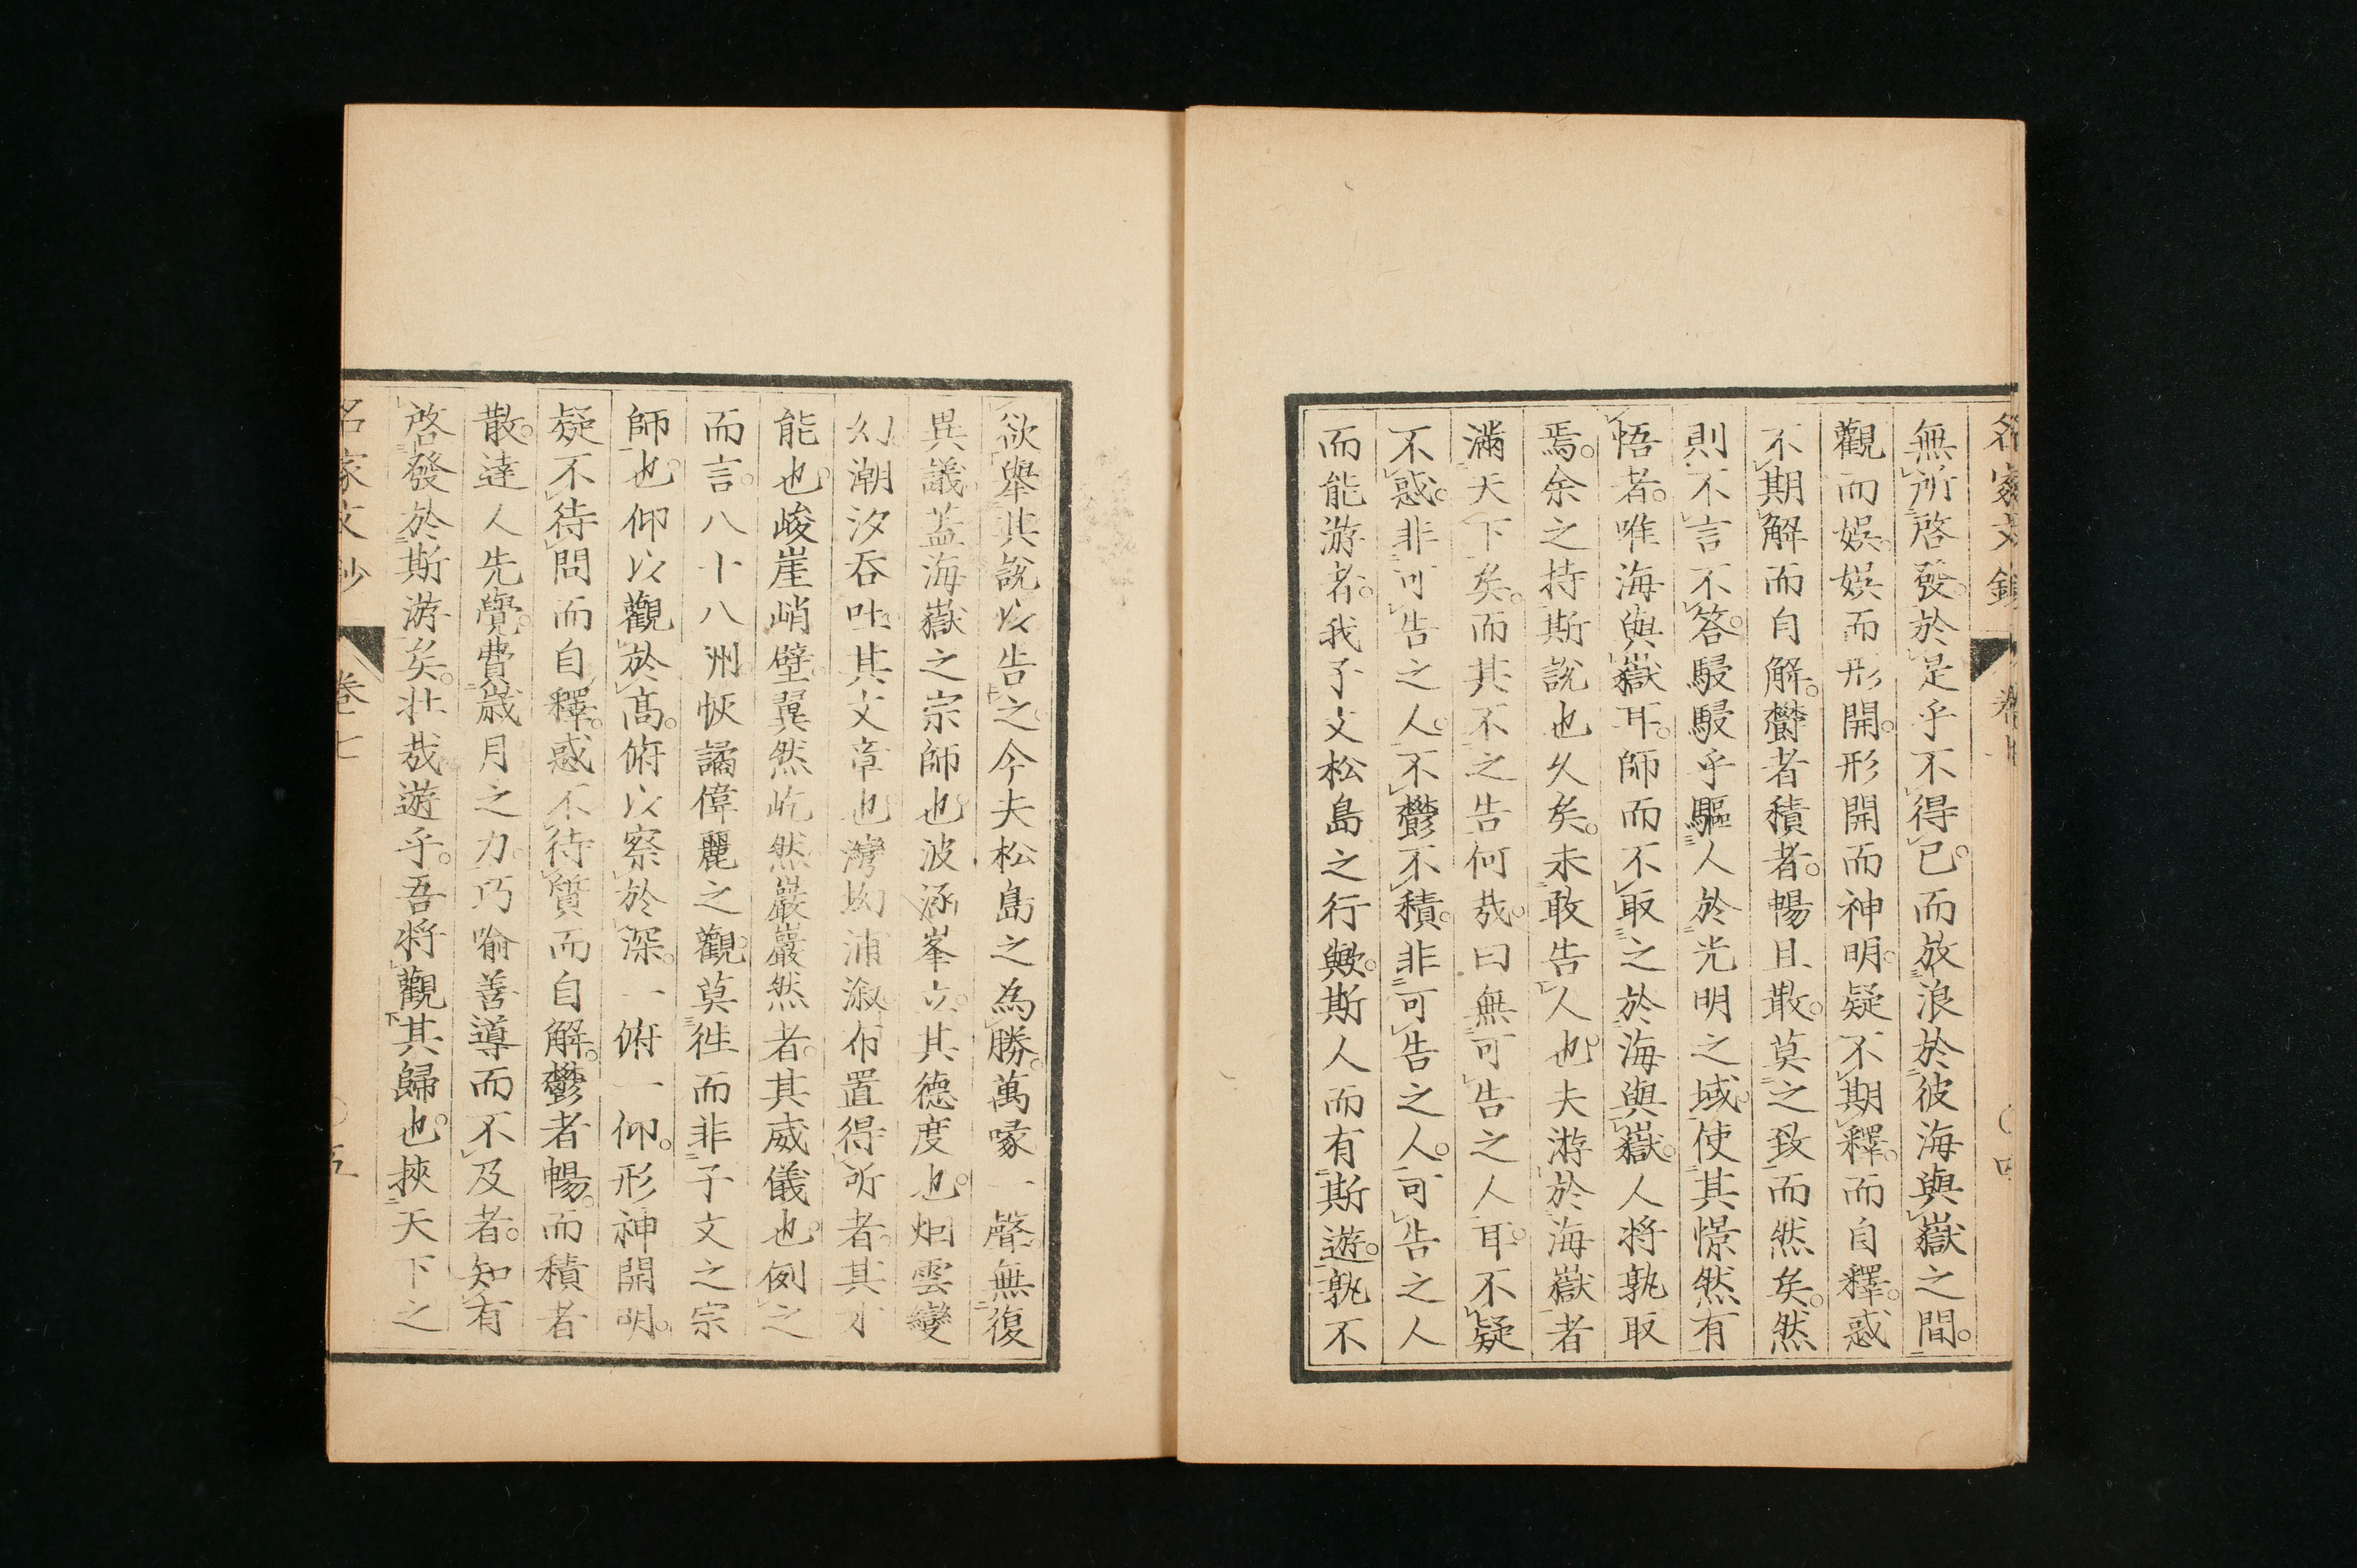 名家文鈔 卷七 ○四
無所啓發於是乎不得已而放浪於彼海與嶽之間
觀而娯娯而形開形開而神明疑不期釋而自釋惑
不期解而自解欝者積者暢且散莫之致而然矣然
則不言不答駸駸乎驅人於光明之域使其憬然有
悟者唯海與嶽耳師而不取之於海與嶽人將孰取
焉余之持斯說也久矣未敢告人也夫游於海嶽者
滿天下矣而其不之告何哉曰無可告之人耳不疑
不惑非可告之人不欝不積非可告之人可告之人
而能游者我子文松島之行歟斯人而有斯遊孰不
欲舉其說以告之今夫松島之為勝萬喙一聲無復
異議葢海嶽之宗師也波涵峯立其德度也烟雲變
幻潮汐吞吐其文章也灣坳浦溆布置得所者其才
能也峻崖峭壁巽然屹然巖巖然者其威儀也例之
而言八十八洲恢譎偉麗之觀莫徃而非子文之宗
師也仰以觀於高俯以察於深一俯一仰形神開明
疑不待問而自釋惑不待質而自解欝者暢而積者
散達人先覺費歲月之力巧喻善導而不及者知有
啓發於斯游矣壮哉遊乎吾將觀其歸也挾天下之
名家文鈔 卷七 ○五